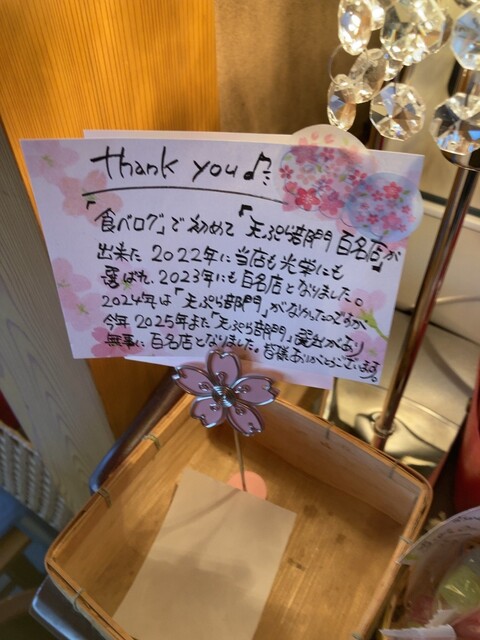 thank you♪
「食べログ」で初めて「天ぷら部門 百名店」が
出来た2022年に当店も光栄にも
選ばれ、2023年にも百名店となりました。
2024年は「天ぷら部門」がなかったのですが
今年2025年また「天ぷら部門」選出があり
無事に百名店となりました。皆様ありがとうございます。